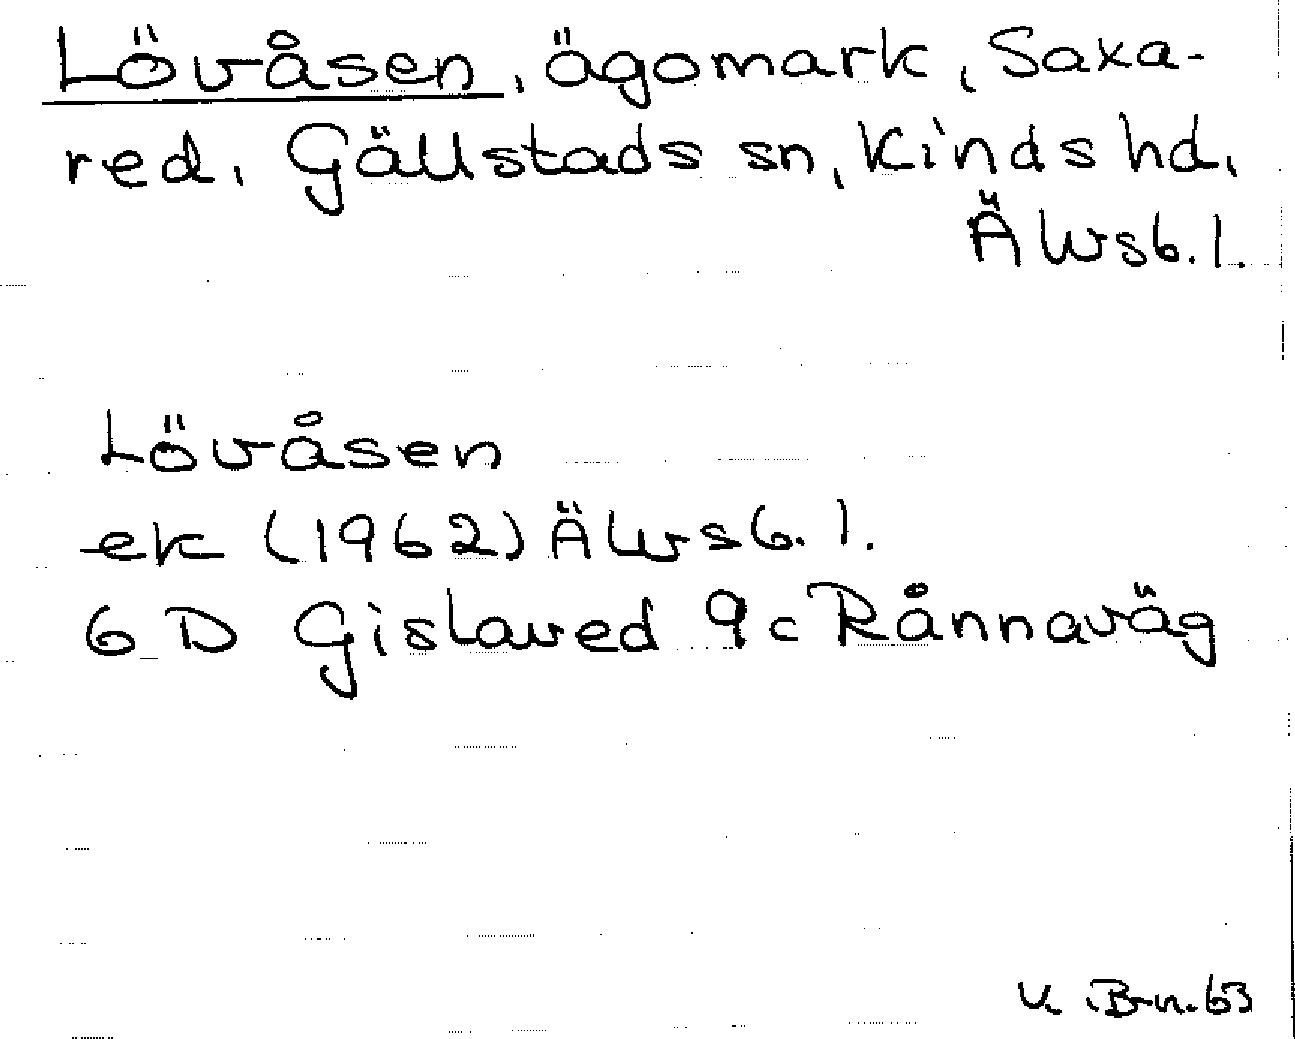 Lövåsen, ägomark, Saxa-
red, Gällstads sn, Kinds hd,
Älvsb. l.
Lövåsen
ek (1962) Älvsb. l.
6 D Gislaved 9c Rånnaväg
V. B-n. 63